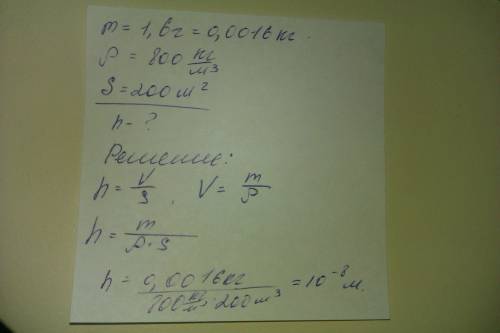 m = 1,6г = 0,0016 кг.
ρ = 800 кг/м³
S = 200 м²
h - ?
Решение:
h = V/S , V = m/ρ
h = m/ρ·S
h = 0,0016кг/800 кг/м³·200м³ = 10⁻⁸ м.